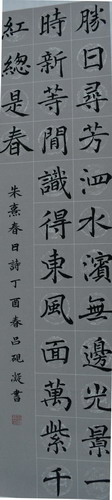 勝日尋芳泗水濱無邊光景一
時新等閒識得東風面萬紫千
紅總是春
朱熹春日詩丁酉春呂硯凝書